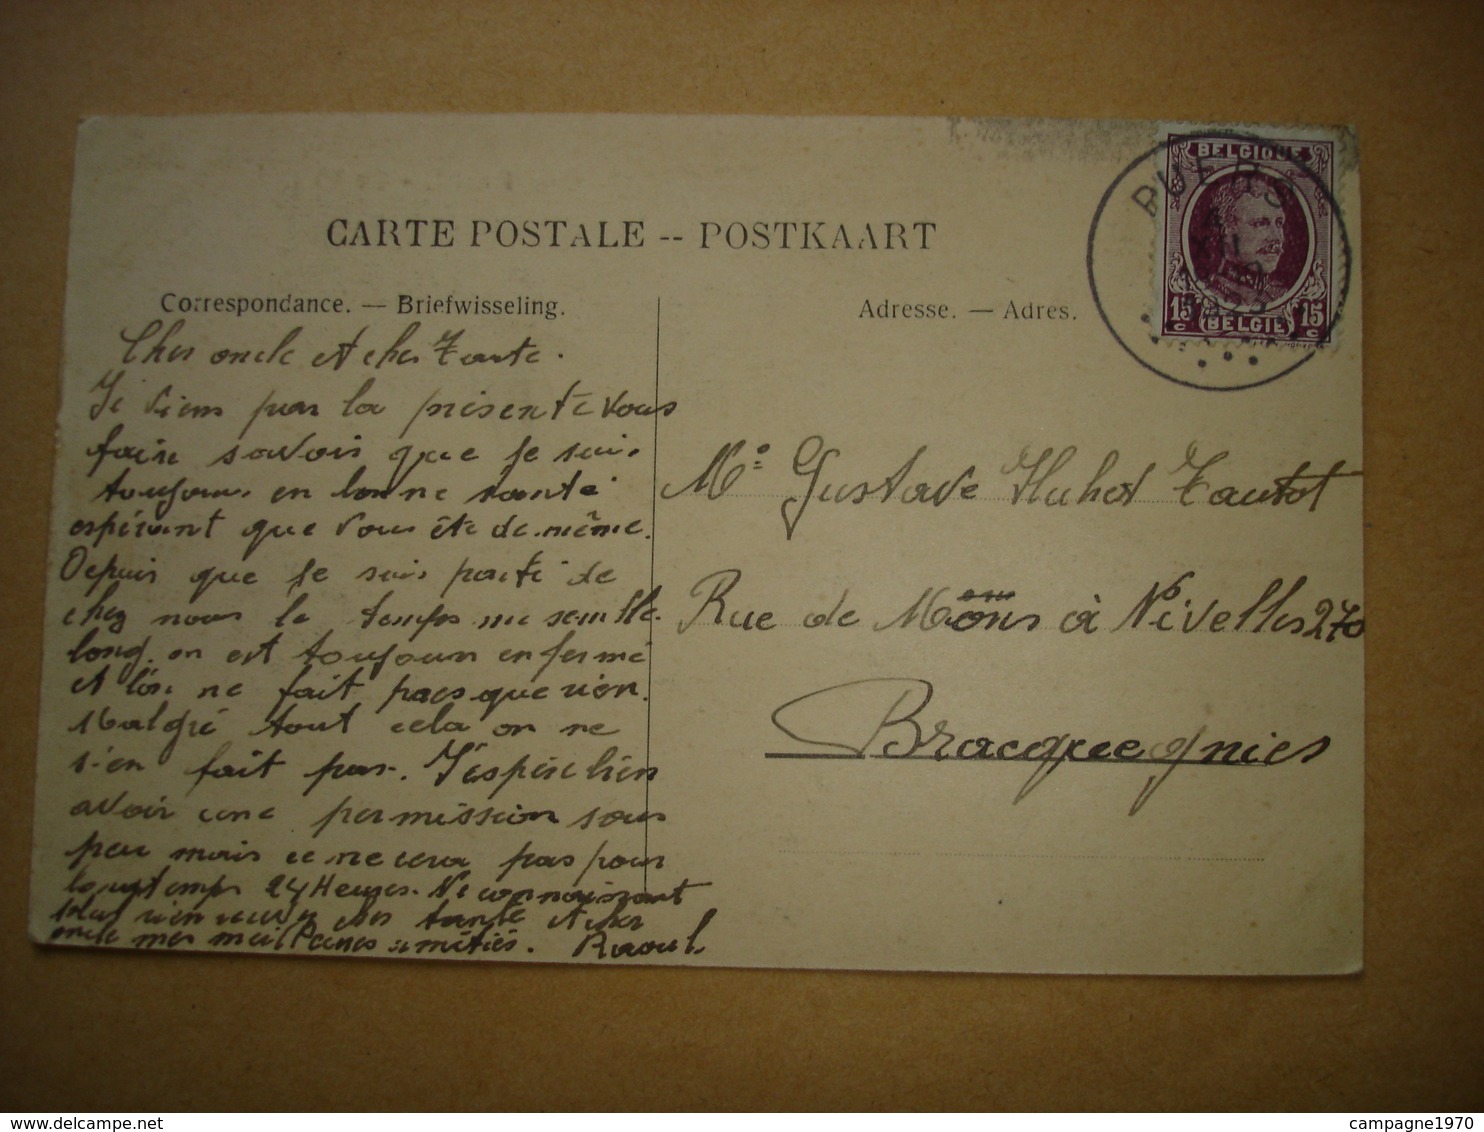 CARTE POSTALE -- POSTKAART
Correspondance. — Briefwisseling.
Adresse. — Adres.
BELGIQUE
PUERS
15 15
c BELGIË c
Cher oncle et cher Tante.
Je viens par la présente vous
faire savoir que je suis
toujours en bonne santé
espérant que vous ête de même.
Depuis que je suis parti de
chez nous le temps me semble
long. on est toujours enfermé
et l'on ne fait presque rien.
Malgré tout cela on ne
s'en fait pas. J'espère bien
avoir une permission sous
peu mais ce ne cera pas pour
longtemps 24 Heures. Ne connaissant
plus rien recevez cher tante et cher
oncle mes meil amitiés. Raoul.
Mr. Gustave Huhot Tautot
Rue de Mons à Nivelles 270
Bracquegnies
campagne1970